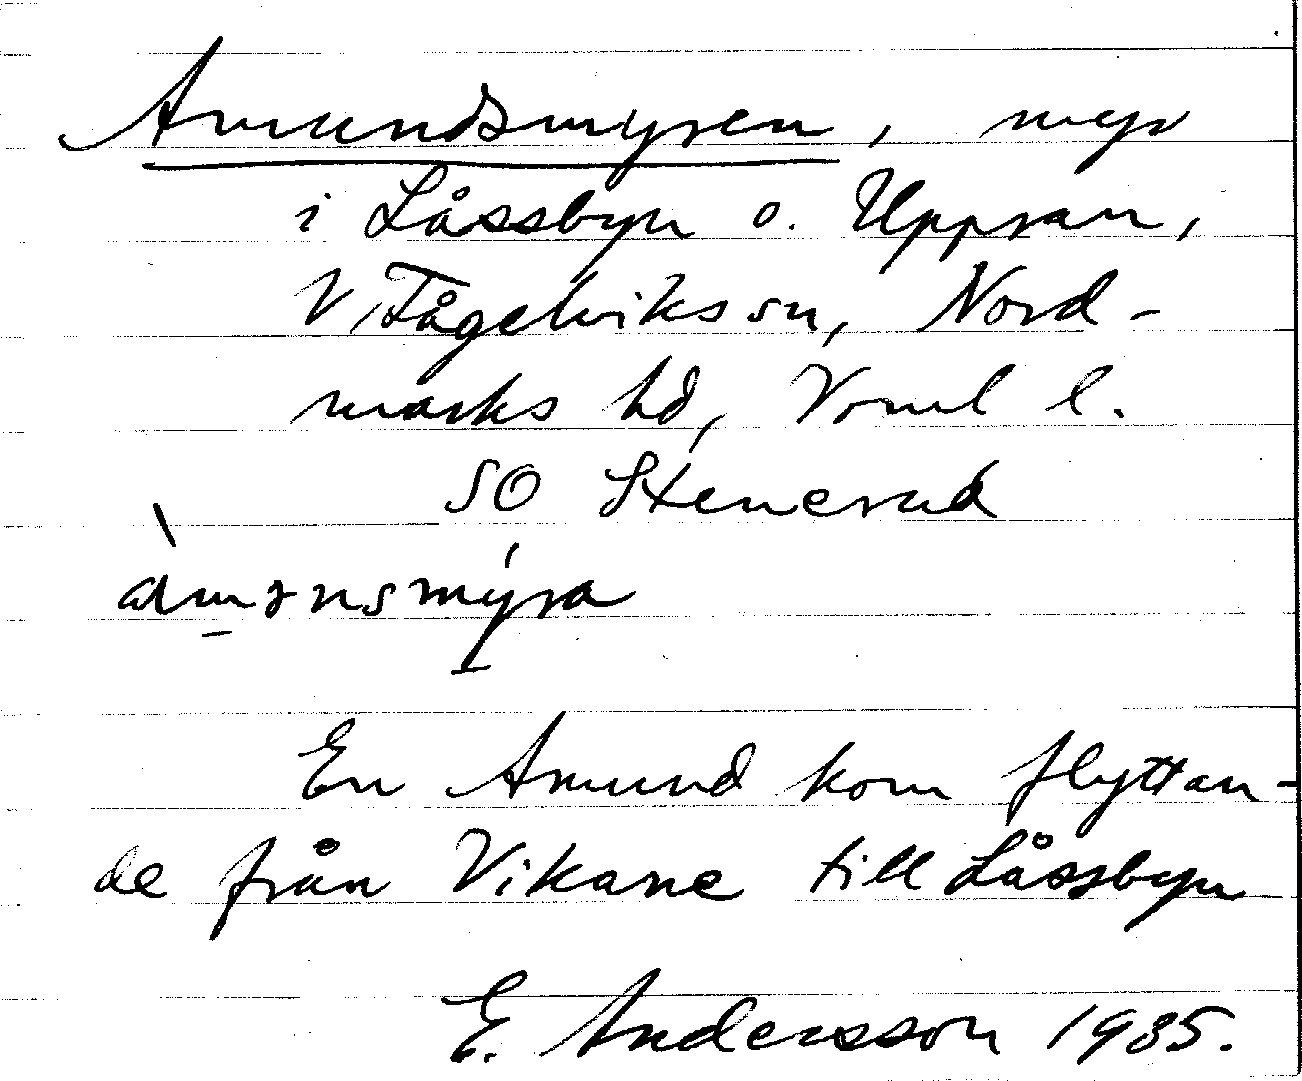 Amundsmyren, myr
i Låssbyn o. Uppsan,
V. Fågelviks sn, Nord-
marks hd, Vrml l.
SO Stenerud
àmənsmýra
En Amund kom flyttan-
de från Vikane till Låssbyn
E. Andersson 1935.